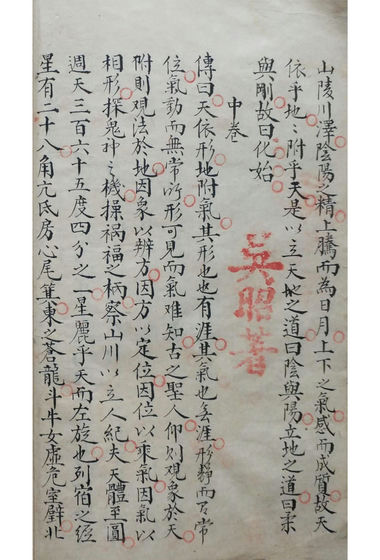 山陵川澤陰陽之精上騰而為日月上下之氣感而成質故天
依乎地〻附乎天是以立天地之道曰陰與陽立地之道曰柔
與剛故曰化始
中巻
傳曰天依形地附氣其形也有涯其氣也無涯形靜而有常
位氣動而無常所形可見而氣难知古之聖人仰则观象於天
附則观法於地因象以辨方因方以定位因位以乘氣因氣以
相形探鬼神之機操祸福之柄察山川以立人紀夫天體至圓
週天三百六十五度四分之一星麗乎天而左旋也列宿之经
星有二十八角亢氐房心尾箕東之蒼龍斗牛女虛危室壁北
吴昭著